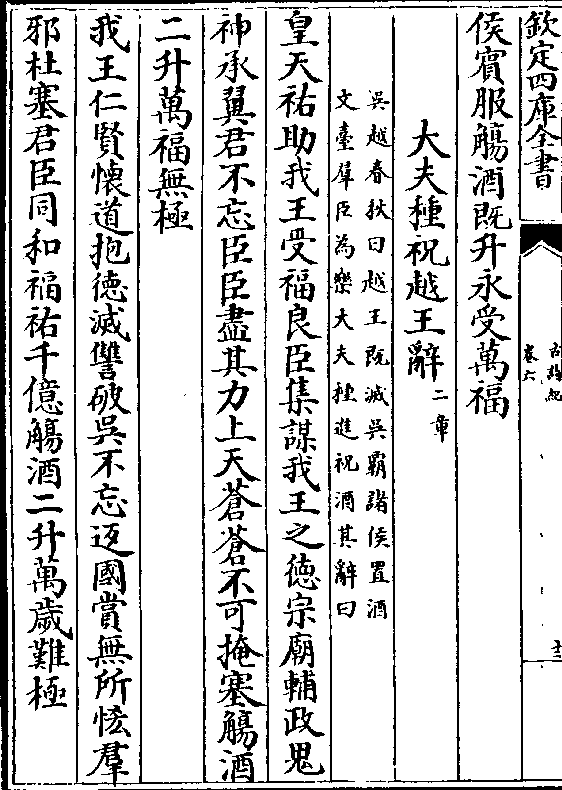 欽定四庫全書
古詩紀
卷六
十三
侯賓服觴酒既升永受萬福
大夫種祝越王辭二章
吳越春秋曰越王既滅吳霸諸侯置酒
文臺羣臣為樂大夫種進祝酒其辭曰
皇天祐助我王受福良臣集謀我王之徳宗廟輔政鬼
神承翼君不忘臣臣盡其力上天蒼蒼不可掩塞觴酒
二升萬福無極
我王仁賢懷道抱徳滅讐破吳不忘返國賞無所恡羣
邪杜塞君臣同和福祐千億觴酒二升萬歲難極